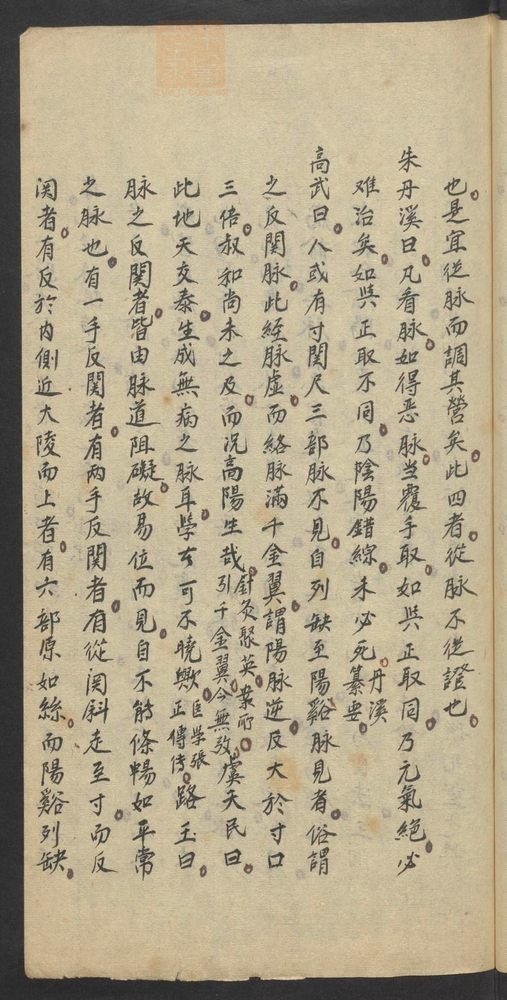 也是宜從脉而調其營矣此四者從脉不從證也
朱丹溪曰凡看脉如得惡脉当覆手取如與正取同乃元氣絕必
难治矣如與正取不同乃陰陽錯綜未必死丹溪纂要
高武曰人或有寸関尺三部脉不見自列缺至陽谿脉見者俗謂
之反関脉此經脉虚而絡脉滿千金翼謂陽脉逆反大於寸口
三倍叔和尚未之及而况高陽生哉針灸聚英業所引千金翼今無攷虞天民曰
此地天交泰生成無病之脉耳學者可不曉歟医学正傳張路玉曰
脉之反関者皆由脉道阻礙故易位而見自不能條暢如平常
之脉也有一手反関者有两手反関者有從関斜走至寸而反
関者有反於内側近大陵而上者有六部原如絲而陽谿列缺